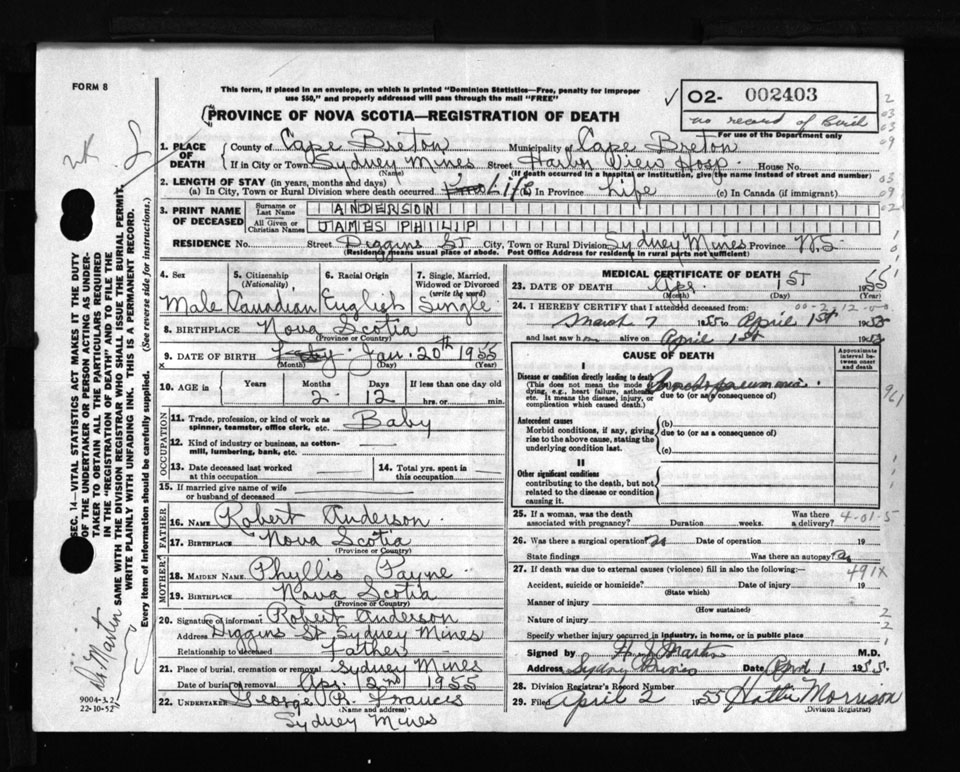 FORM 8
This form, if placed in an envelope, on which is printed "Dominion Statistics—Free, penalty for improper
use $50," and properly addressed will pass through the mail "FREE"
02- 002403
no record of Birth
For use of the Department only
PROVINCE OF NOVA SCOTIA—REGISTRATION OF DEATH
1. PLACE OF DEATH { County of Cape Breton Municipality of Cape Breton
If in City or Town Sydney Mines Street Harbor View Hosp. House No.
(Name) (If death occurred in a hospital or institution, give the name instead of street and number)
2. LENGTH OF STAY (in years, months and days)
(a) In City, Town or Rural Division where death occurred Life (b) In Province Life (c) In Canada (if immigrant)
3. PRINT NAME OF DECEASED { Surname or Last Name ANDERSON
All Given or Christian Names JAMES PHILIP
RESIDENCE No. Street Diggins St City, Town or Rural Division Sydney Mines Province N.S.
(Residency means usual place of abode. Post Office Address for residents in rural parts not sufficient)
4. Sex 5. Citizenship (Nationality) 6. Racial Origin 7. Single, Married, Widowed or Divorced (write the word)
Male Canadian English Single
8. BIRTHPLACE Nova Scotia
(Province or Country)
9. DATE OF BIRTH Jan. 20th 1955
(Month) (Day) (Year)
10. AGE in { Years Months Days If less than one day old
2 12 hrs. or min.
OCCUPATION
11. Trade, profession, or kind of work as spinner, teamster, office clerk, etc. Baby
12. Kind of industry or business, as cotton-mill, lumbering, bank, etc.
13. Date deceased last worked at this occupation
14. Total yrs. spent in this occupation
15. If married give name of wife or husband of deceased
FATHER
16. NAME Robert Anderson
17. BIRTHPLACE Nova Scotia
(Province or Country)
MOTHER
18. MAIDEN NAME Phyllis Payne
19. BIRTHPLACE Nova Scotia
(Province or Country)
20. Signature of informant Robert Anderson
Address Diggins St. Sydney Mines
Relationship to deceased Father
21. Place of burial, cremation or removal Sydney Mines
Date of burial or removal Apr. 2nd 1955
22. UNDERTAKER George R. Frances
(Name and address)
Sydney Mines
MEDICAL CERTIFICATE OF DEATH
23. DATE OF DEATH Apr. 1ST 1955
(Month) (Day) (Year)
24. I HEREBY CERTIFY that I attended deceased from:
March 7 1955 to April 1st 1955
and last saw him alive on April 1st 1955
CAUSE OF DEATH
Approximate interval between onset and death
I
Disease or condition directly leading to death
(This does not mean the mode of dying, e.g., heart failure, asthenia, etc. It means the disease, injury, or complication which caused death.)
(a) Bronchopneumonia
due to (or as a consequence of)
Antecedent causes
Morbid conditions, if any, giving rise to the above cause, stating the underlying condition last.
(b)
due to (or as a consequence of)
(c)
II
Other significant conditions
contributing to the death, but not related to the disease or condition causing it.
25. If a woman, was the death associated with pregnancy? Duration weeks. Was there a delivery?
4-01-5
26. Was there a surgical operation? no Date of operation 19
State findings Was there an autopsy? no
491X
27. If death was due to external causes (violence) fill in also the following:—
Accident, suicide or homicide? Date of injury 19
(State which)
Manner of injury
(How sustained)
Nature of injury
Specify whether injury occurred in industry, in home, or in public place
Signed by H. J. Martin
Address Sydney Mines Date April 1 1955.
28. Division Registrar's Record Number
29. Filed April 2 1955 Hattie Morrison
(Division Registrar)
SEC. 14—VITAL STATISTICS ACT MAKES IT THE DUTY
OF THE UNDERTAKER OR PERSON ACTING AS UNDER-
TAKER TO OBTAIN ALL THE PARTICULARS REQUIRED
IN THE "REGISTRATION OF DEATH" AND TO FILE THE
SAME WITH THE DIVISION REGISTRAR WHO SHALL ISSUE THE BURIAL PERMIT.
WRITE PLAINLY WITH UNFADING INK. THIS IS A PERMANENT RECORD.
Every item of information should be carefully supplied. (See reverse side for instructions.)
Dr. Martin
9004-3.27
22-10-52